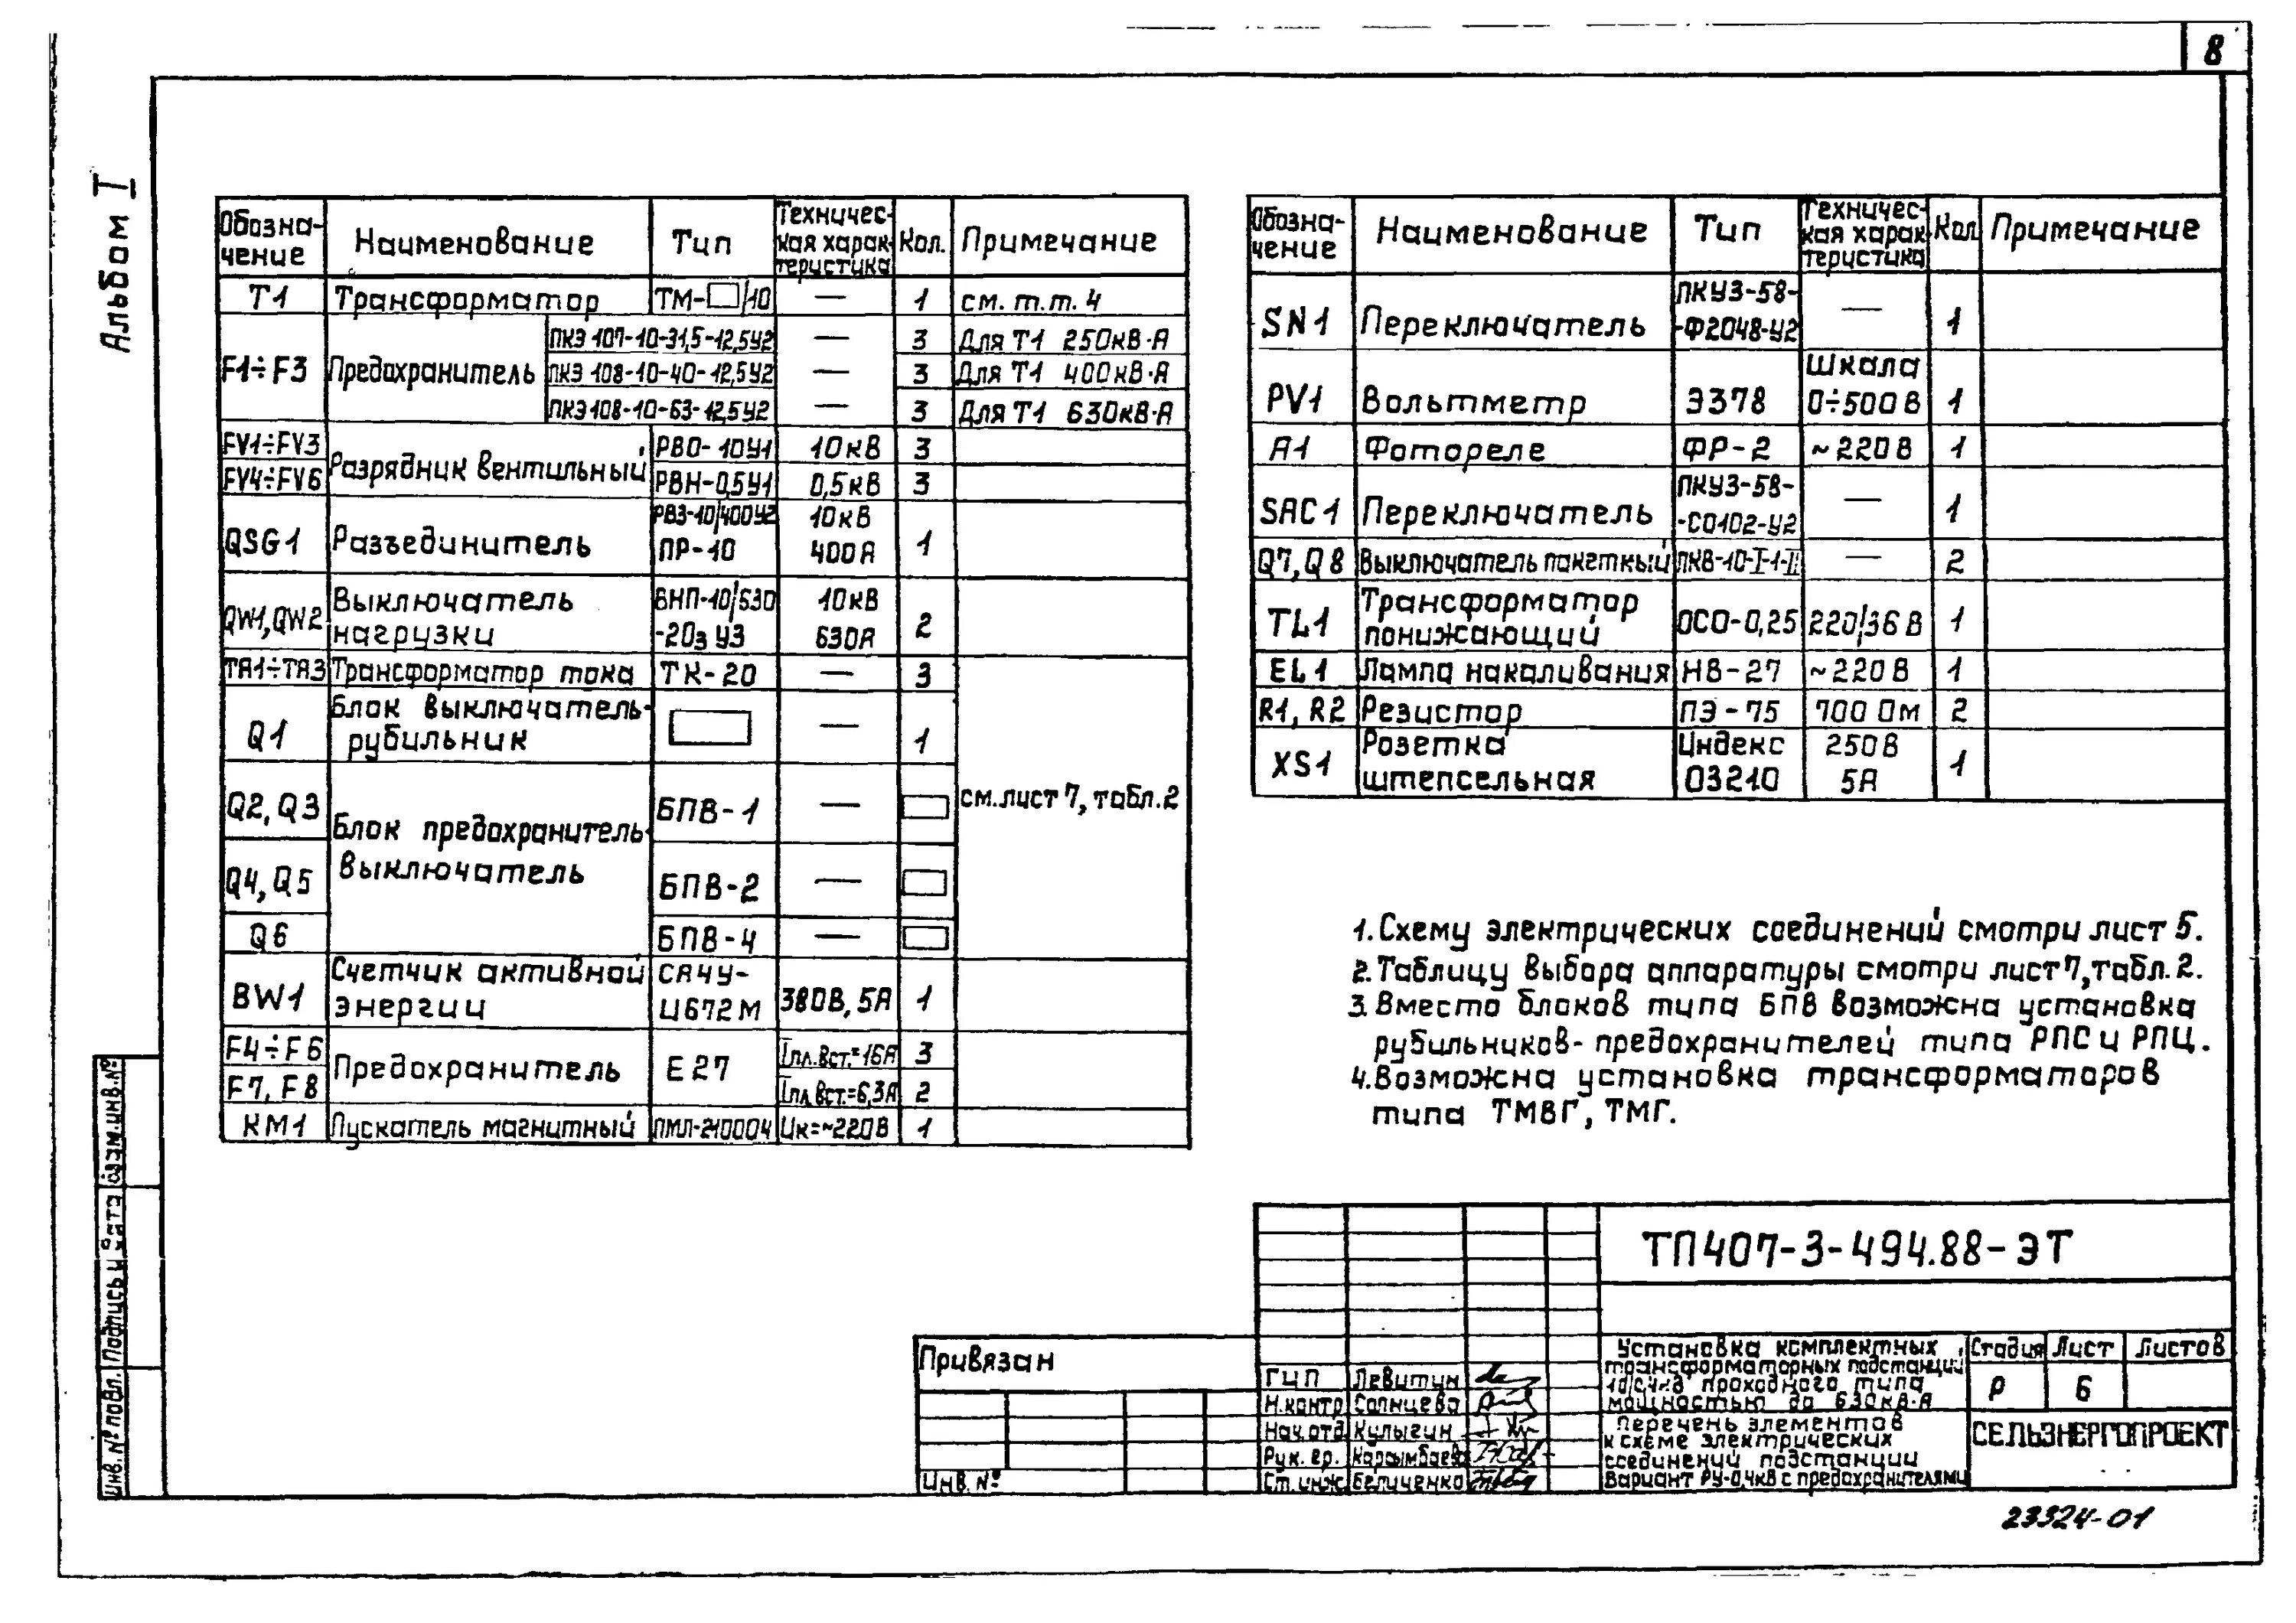 8
Альбом I
Обозна-чение Наименование Тип Техничес-кая харак-теристика Кол. Примечание
Т1 Трансформатор ТМ-□/10 — 1 см. т.т. 4
F1÷F3 Предохранитель ПКЭ 107-10-31,5-12,5У2 — 3 Для Т1 250кВ·А
ПКЭ 108-10-40-12,5У2 — 3 Для Т1 400кВ·А
ПКЭ 108-10-63-12,5У2 — 3 Для Т1 630кВ·А
FV1÷FV3 Разрядник вентильный РВО-10У1 10кВ 3
FV4÷FV6 РВН-0,5У1 0,5кВ 3
QSG1 Разъединитель РВЗ-10/400У2 ПР-10 10кВ 400А 1
QW1, QW2 Выключатель нагрузки ВНП-10/630-20з У3 10кВ 630А 2
ТА1÷ТА3 Трансформатор тока ТК-20 — 3
Q1 Блок выключатель-рубильник □ — 1
Q2, Q3 Блок предохранитель-выключатель БПВ-1 — □ см. лист 7, табл. 2
Q4, Q5 БПВ-2 — □
Q6 БПВ-4 — □
BW1 Счетчик активной энергии СА4У-И672М 380В, 5А 1
F4÷F6 Предохранитель Е27 Iпл.вст.=16А 3
F7, F8 Iпл.вст.=6,3А 2
КМ1 Пускатель магнитный ПМЛ-210004 Uк=~220В 1
Обозна-чение Наименование Тип Техничес-кая харак-теристика Кол Примечание
SN1 Переключатель ПКУ3-58--Ф2048-У2 — 1
PV1 Вольтметр Э378 Шкала 0÷500В 1
А1 Фотореле ФР-2 ~220В 1
SAC1 Переключатель ПКУ3-58--С0102-У2 — 1
Q7, Q8 Выключатель пакетный ПКВ-10-I-1-II — 2
TL1 Трансформатор понижающий ОСО-0,25 220/36В 1
EL1 Лампа накаливания НВ-27 ~220В 1
R1, R2 Резистор ПЭ-75 700 Ом 2
XS1 Розетка штепсельная Индекс 03210 250В 5А 1
1. Схему электрических соединений смотри лист 5.
2. Таблицу выбора аппаратуры смотри лист 7, табл. 2.
3. Вместо блоков типа БПВ возможна установка
рубильников-предохранителей типа РПС и РПЦ.
4. Возможна установка трансформаторов
типа ТМВГ, ТМГ.
Инв.№ подл. Подпись и дата Взам.инв.№
ТП407-3-494.88-ЭТ
Привязан
Инв. №
ГИП Левитин
Н.контр Солнцева
Нач.отд Кулыгин
Рук. гр.
Ст.инж Беличенко
Установка комплектных
трансформаторных подстанций
10/0,4кВ проходного типа
мощностью до 630кВ·А
Стадия Лист Листов
Р 6
Перечень элементов
к схеме электрических
соединений подстанции
Вариант РУ-0,4кВ с предохранителями
СЕЛЬЭНЕРГОПРОЕКТ
23324-01